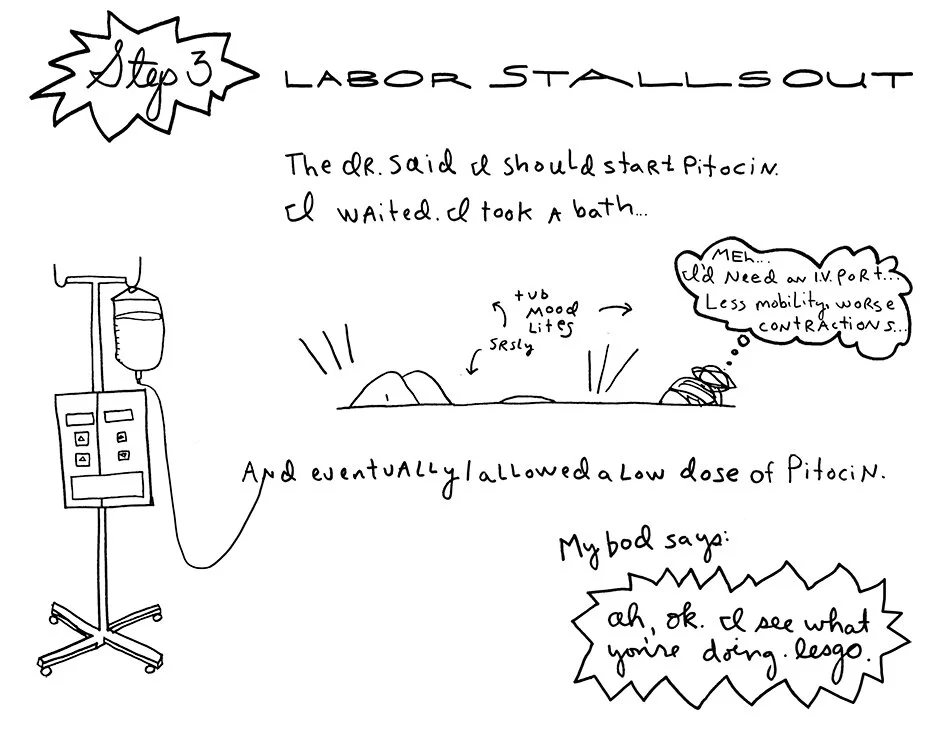 Step 3
LABOR STALLS OUT
The DR. Said I should start Pitocin.
I waited. I took a bath...
MEh...
I'd Need an I.V. Port...
Less mobility, worse
contractions...
tub
Mood
Lites
SRSly
And eventually I allowed a low dose of Pitocin.
My bod says:
ah, ok. I see what
you're doing. lesgo.